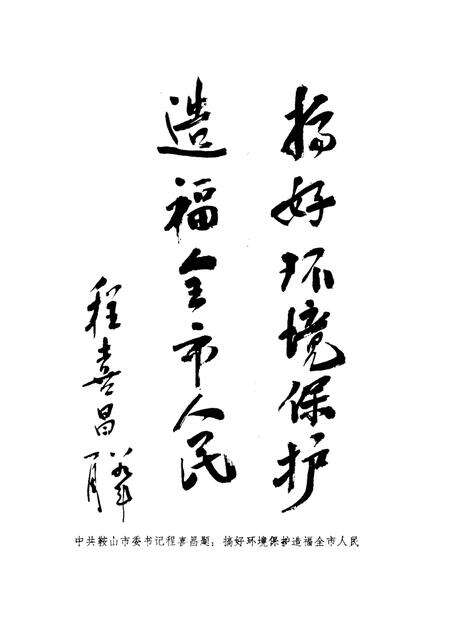 搞好环境保护
造福全市人民
程喜昌
中共鞍山市委书记程喜昌题：搞好环境保护造福全市人民